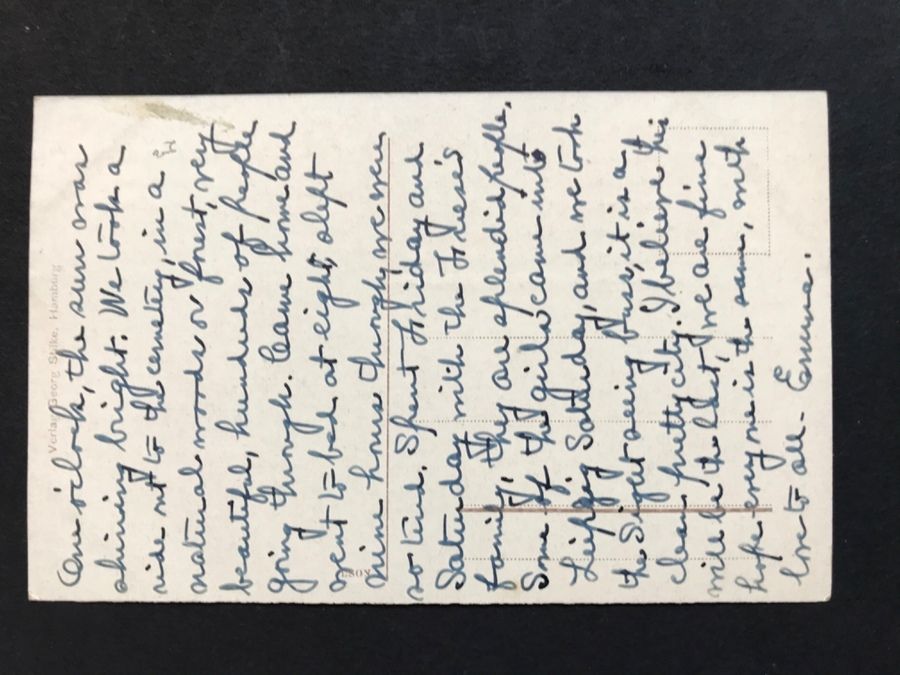 One o'clock, the sun was
shining bright. We took a
ride out to the cemetery, in a
natural woods or forest, very
beautiful, hundreds of people
going through. Came home and
went to bed at eight, slept
nine hours though we were
so tired. Spent Friday and
Saturday with the
family, they are splendid people,
Some of the girls came into
Leipzig Saturday, and we took
the Sight seeing buss, it is a
clean pretty city. I believe this
will be the last, we are fine
hope every one is the same, with
love to all - Emma.
Verlag Georg Stilke, Hamburg